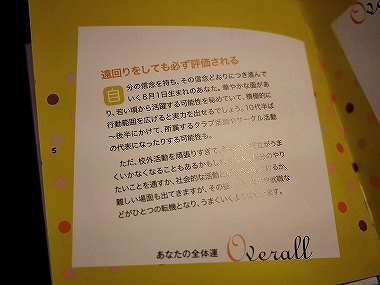 遠回りをしても必ず評価される
自分の信念を持ち、その信念どおりにつき進んで
いく8月1日生まれのあなた。華やかな面があ
り、若い頃から活躍する可能性を秘めていて、積極的に
行動範囲を広げると実力を出せるでしょう。10代半ば
〜後半にかけて、所属するクラブ活動やサークル活動
の代表になったりする可能性も。
ただ、校外活動を頑張りすぎて、
くいかなくなることもあるかもし 分のやり
たいことを通すか、社会的な活動
難しい場面も出てきますが、その後 や就職な
どがひとつの転機となり、うまくいく ます。
5
あなたの全体運 Overall
O